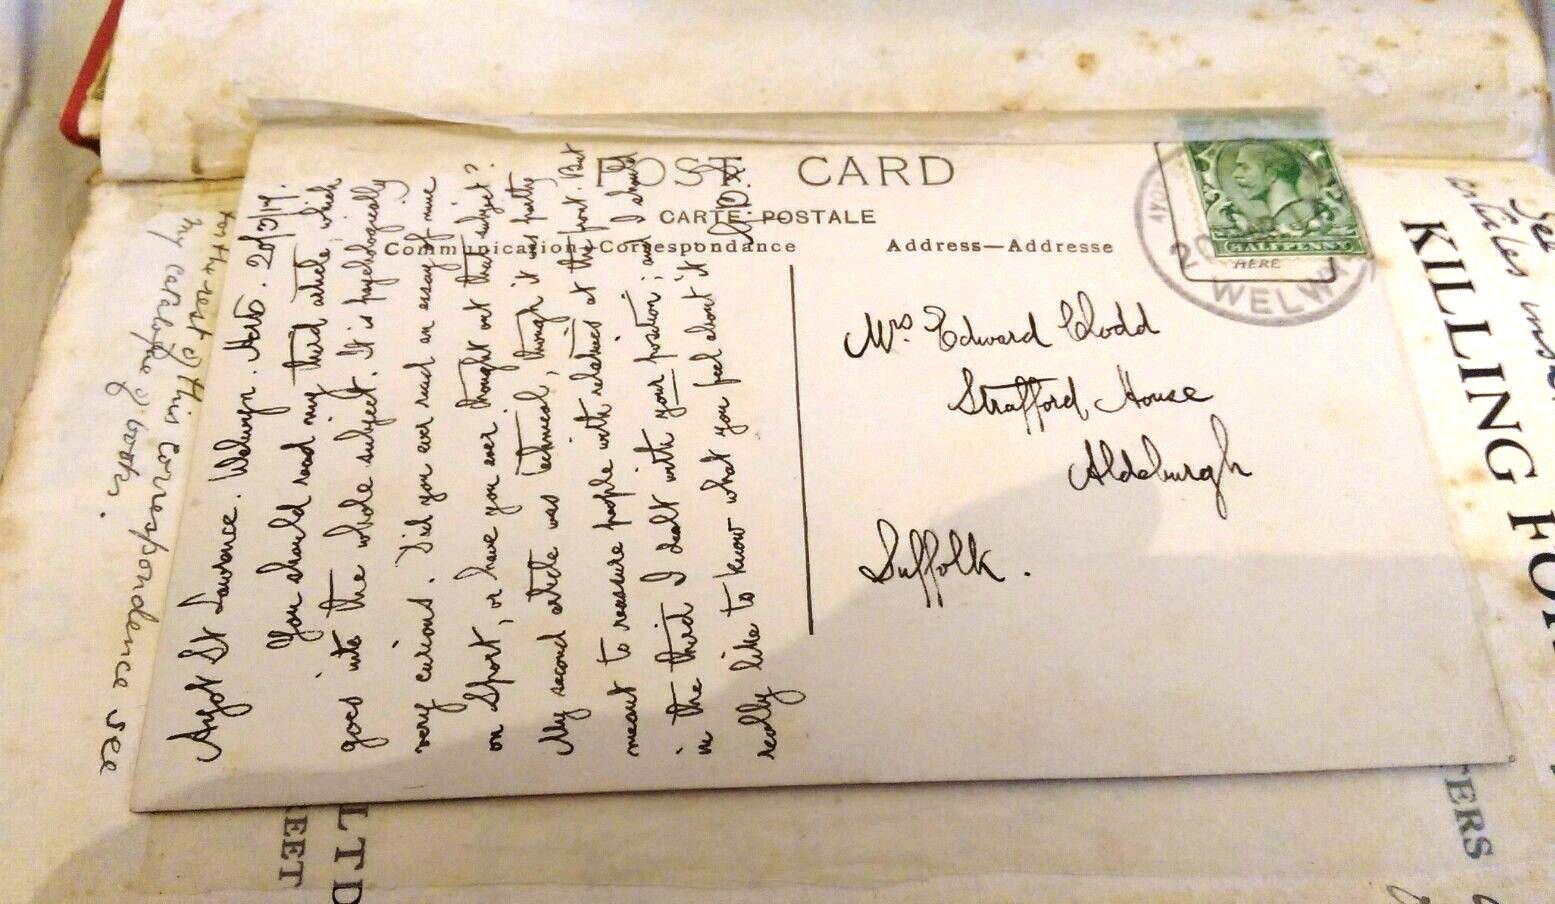 POST CARD
CARTE POSTALE
Communication—Correspondance
Address—Addresse
HALFPENNY
HERE
WELW
Ayot St Lawrence. Welwyn. Herts.
You should read my third article which
goes into the whole subject. It is psychologically
very curious. Did you ever read an essay of mine
on Sport, or have you ever thought out that subject?
My second article was technical, though it was partly
meant to reassure people with relatives at the front. But
in the third I dealt with your position; and I should
really like to know what you feel about it
G.B.S.
Mrs. Edward Clodd
Strafford House
Aldeburgh
Suffolk.
for the rest of this correspondence see
my catalogue of books.
See
KILLING FOR
LTD
EET
TERS